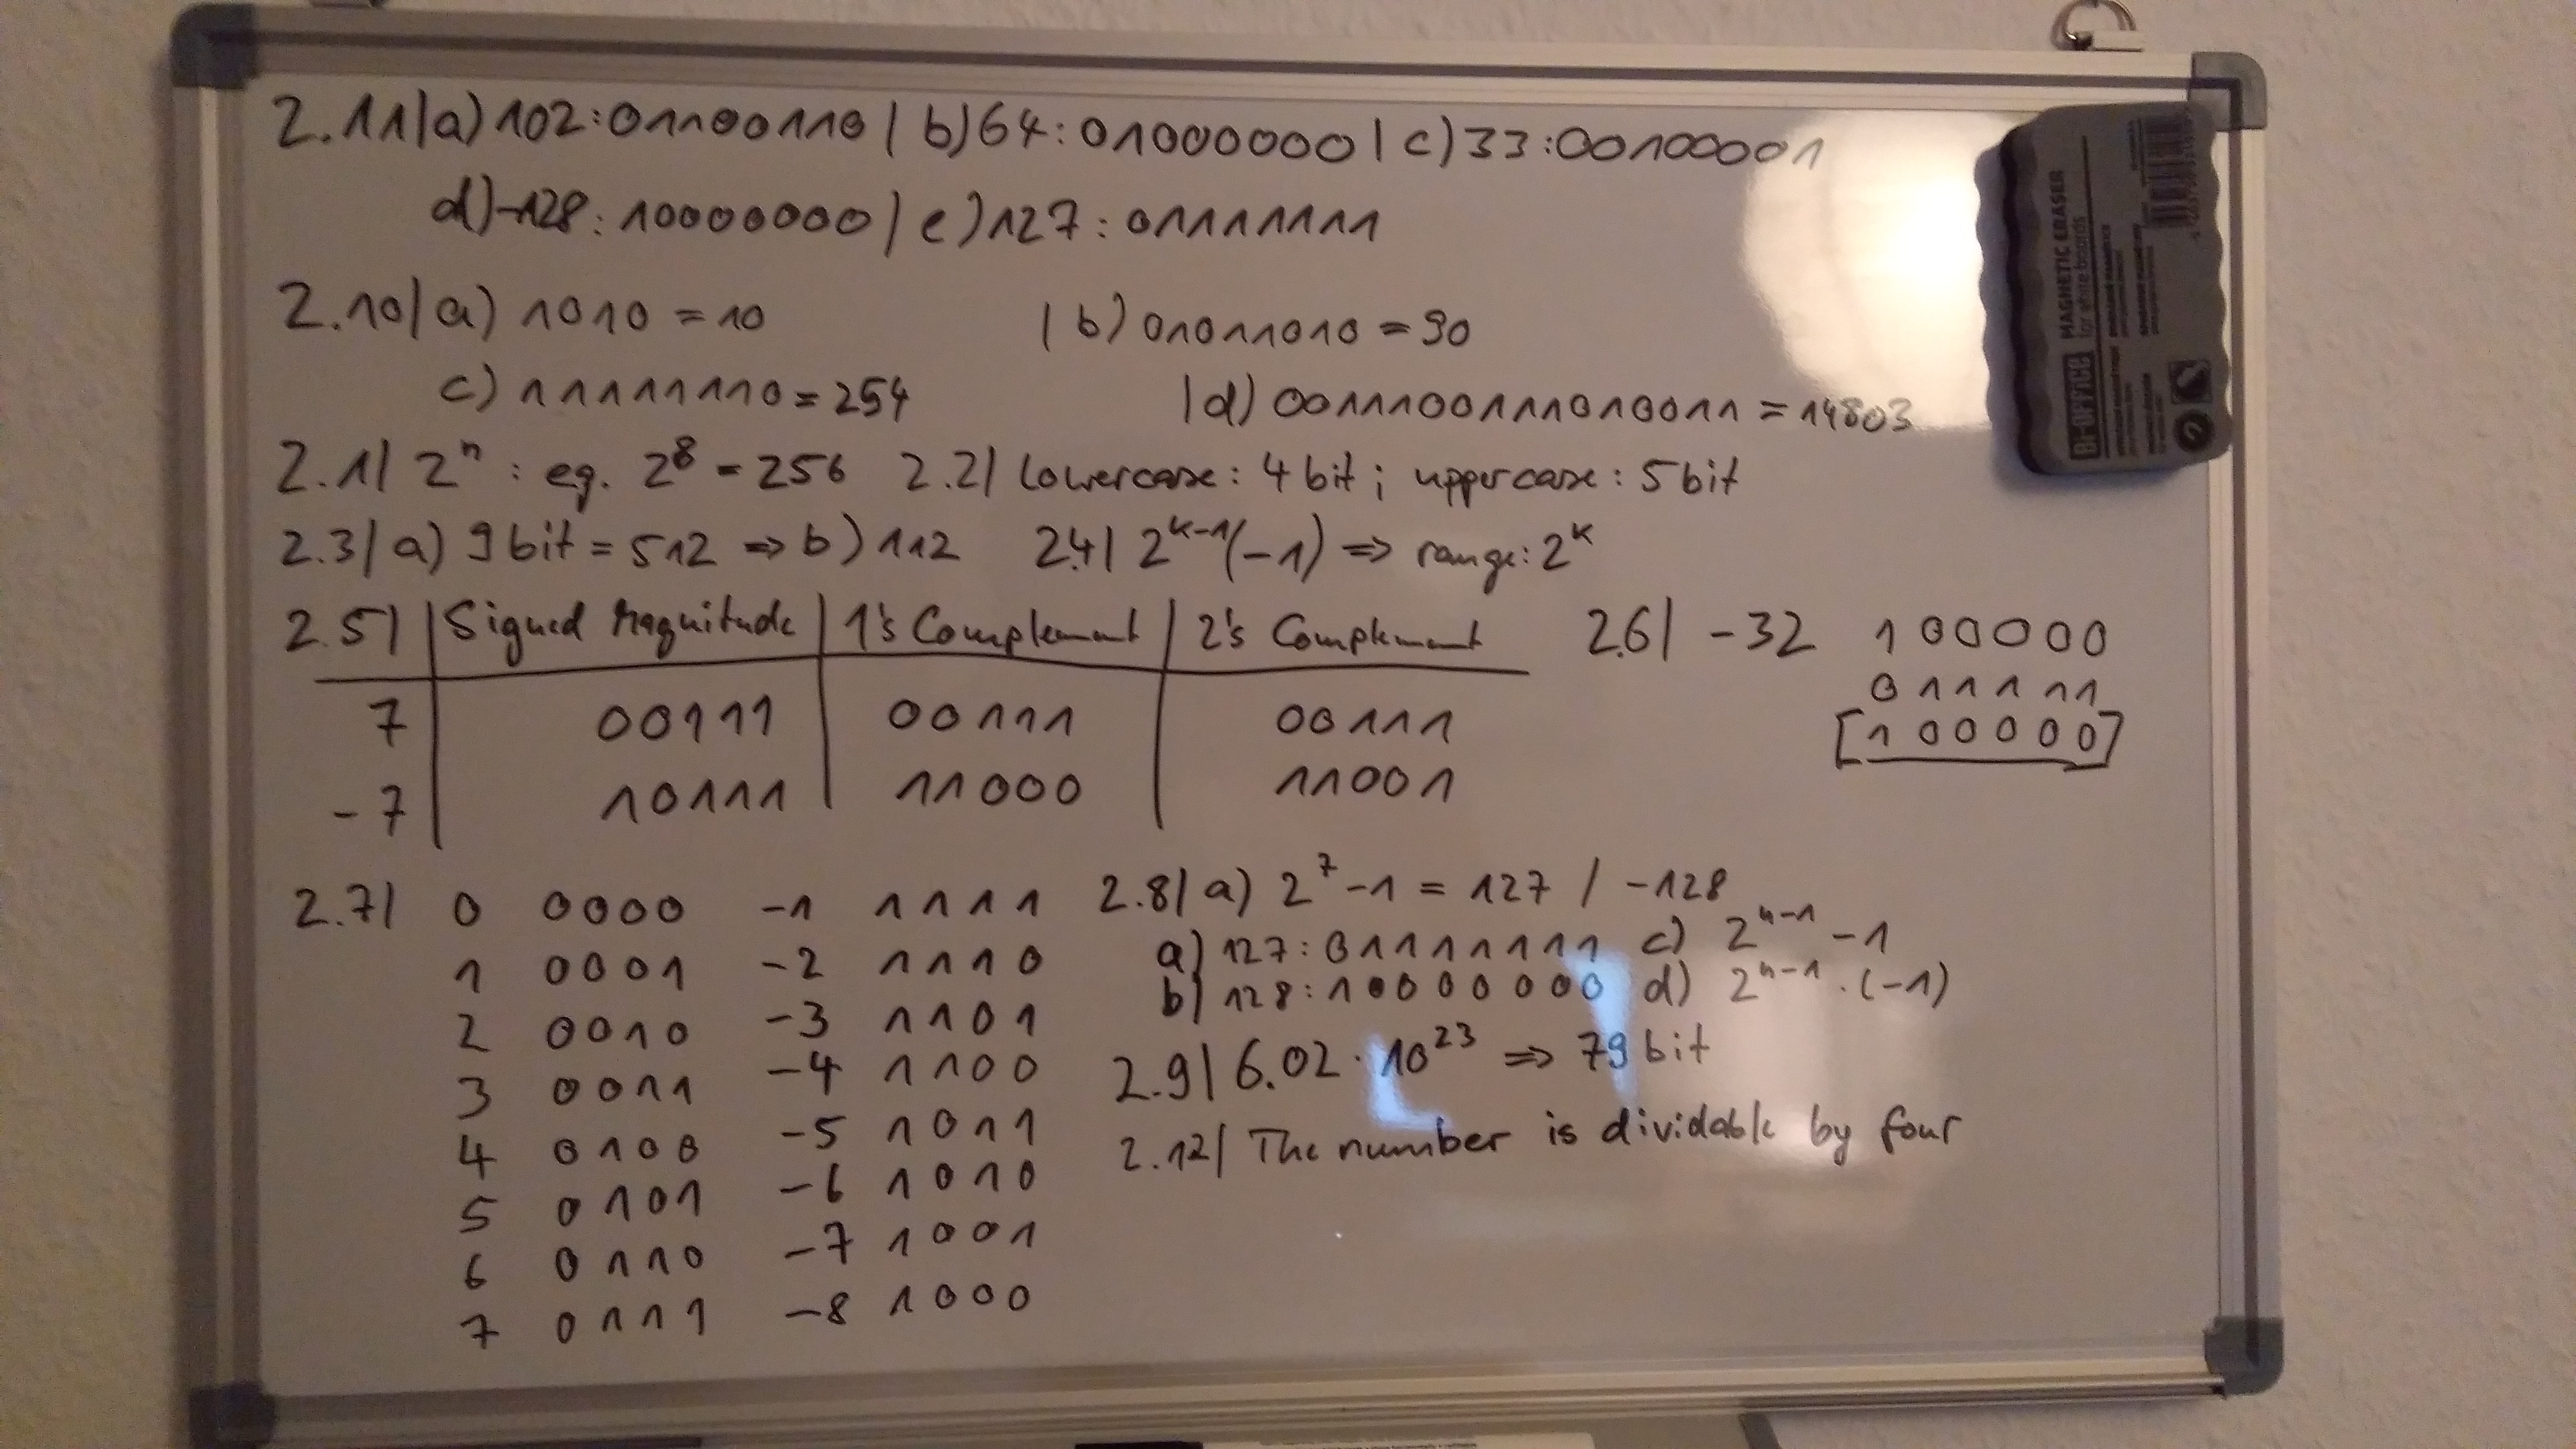 2.11|a)102:01100110 | b)64:01000000 | c)33:00100001
d)-128:10000000 | e)127:01111111
2.10|a) 1010 = 10 | b) 01011010 = 90
c) 11111110 = 254 | d) 0011100111010011 = 14803
2.1| 2^n : eg. 2^8 = 256 2.2| lowercase: 4 bit; uppercase: 5 bit
2.3| a) 9 bit = 512 => b) 112 2.4| 2^k-1(-1) => range: 2^k
2.5| Signed Magnitude | 1's Complement | 2's Complement
7 00111 00111 00111
-7 10111 11000 11001
2.6| -32 100000
011111
[100000]
2.7| 0 0000 -1 1111
1 0001 -2 1110
2 0010 -3 1101
3 0011 -4 1100
4 0100 -5 1011
5 0101 -6 1010
6 0110 -7 1001
7 0111 -8 1000
2.8| a) 2^7-1 = 127 / -128
a) 127: 01111111 c) 2^n-1 -1
b) 128: 10000000 d) 2^n-1 · (-1)
2.9| 6.02 · 10^23 => 79 bit
2.12| The number is dividable by four
Bi-OFFICE
MAGNETIC ERASER
for white boards